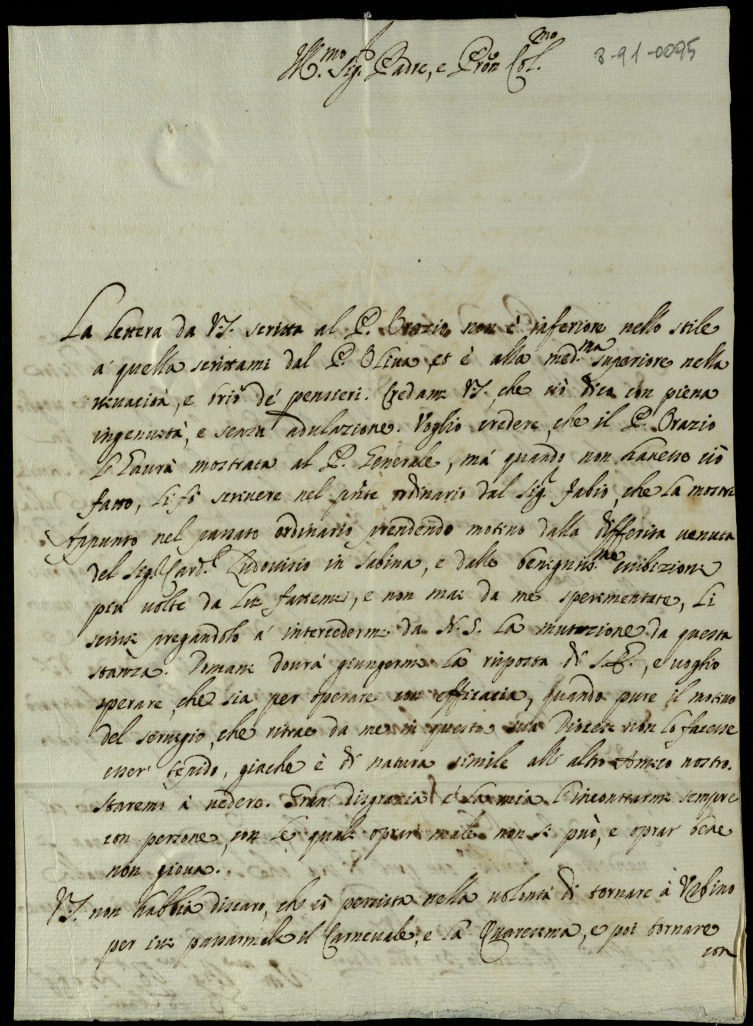 Ill.mo Sig.r Padre, e Pron Col.mo
3-91-0095
La lettera da V.S. scritta al P. Orazio non è inferiore nello stile
à quella scrittami dal P. Oliva et è alla med.ma superiore nella
vivacità, e brio de' pensieri. Credami V.S. che ciò dica con piena
ingenuità, e senza adulazione. Voglio credere, che il P. Orazio
le l'aurà mostrata al P. Generale, mà quando non havesse ciò
fatto, li fò scrivere nel pnte ordinario dal Sig.r Fabio che la mostri
Appunto nel passato ordinario prendendo motivo dalla differita venuta
del Sig.r Card.l Ludovisio in Sabina, e dalle benigniss.me esibizioni
più volte da lui fattemi, e non mai da me sperimentate, li
scrissi pregandolo à intercedermi da N.S. la mutazione da questa
stanza. Domani dourà giungermi la risposta di S.E., e voglio
sperare, che sia per operare con efficacia, quando pure il motivo
del servigio, che ritrae da me in questa sua Diocesi non lo facesse
esser tepido, giache è di natura simile all' altro Amico nostro.
Staremo à vedere. Gran disgrazia è la mia l'incontrarmi sempre
con persone, con le quali oprar male non si può, e oprar bene
non giova.
V.S. non habbia discaro, che io persista nella volontà di tornare à Urbino
per ivi passarmela il Carnevale, e la Quaresima, e poi tornare
con